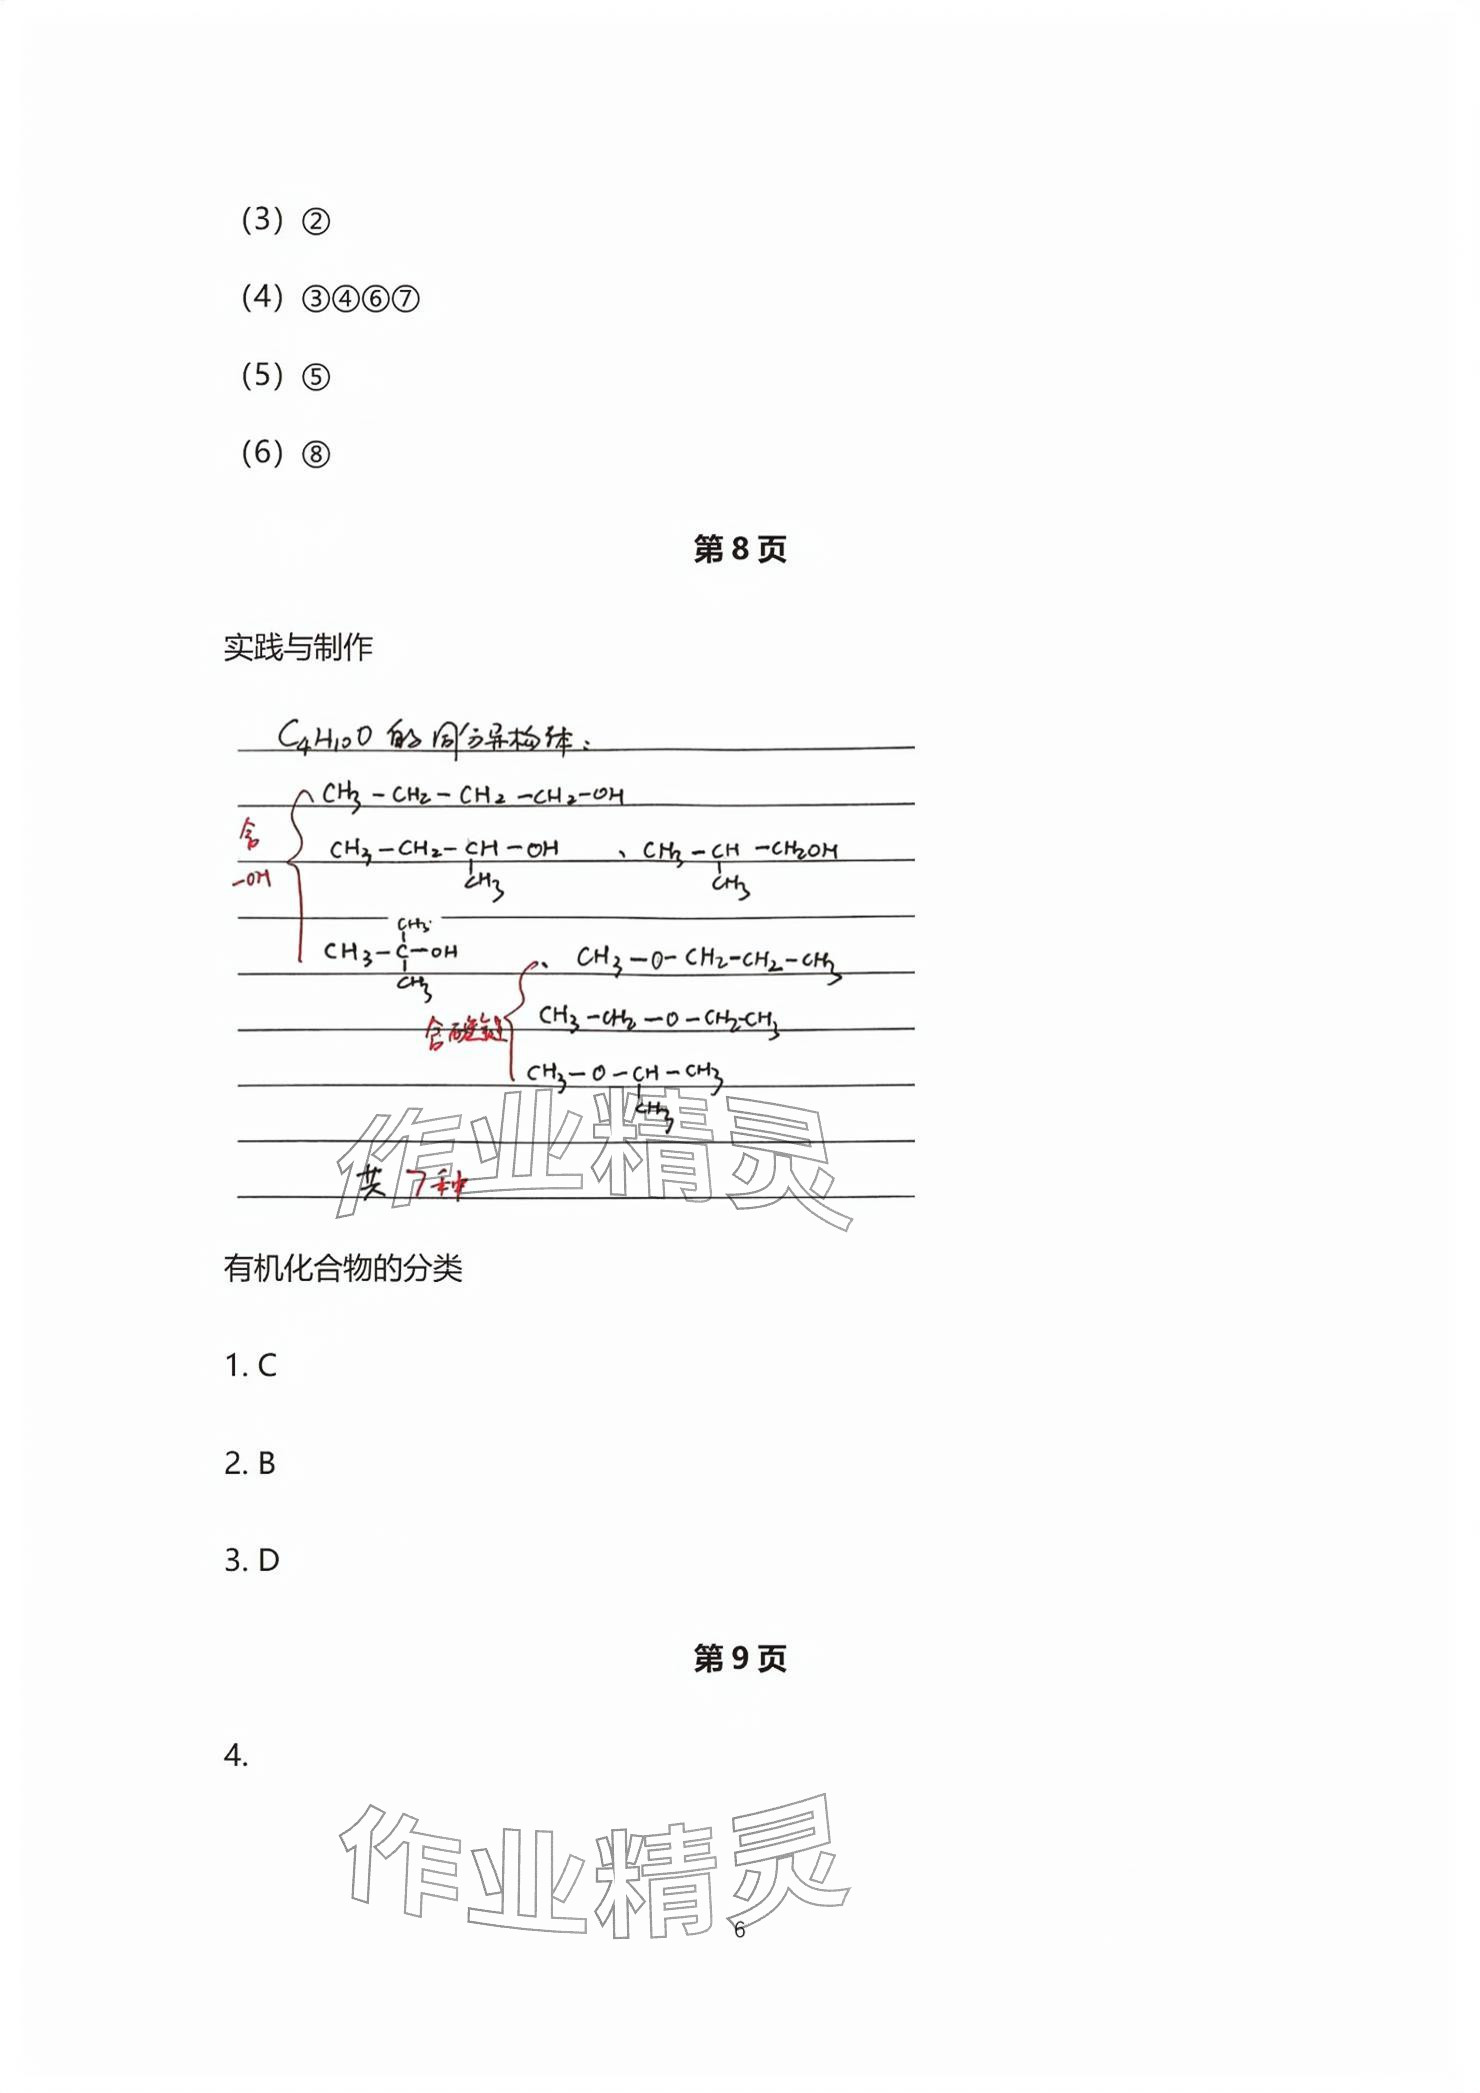 （3）②
（4）③④⑥⑦
（5）⑤
（6）⑧
第 8 页
实践与制作
C4H10O 的同分异构体：
CH3-CH2-CH2-CH2-OH
含
CH3-CH2-CH-OH 、CH3-CH-CH2OH
-OH
CH3 CH3
CH3
CH3-C-OH 、 CH3-O-CH2-CH2-CH3
CH3
CH3-CH2-O-CH2-CH3
含醚键
CH3-O-CH-CH3
CH3
作业精灵
共 7种
有机化合物的分类
1. C
2. B
3. D
第 9 页
4.
作业精灵
6